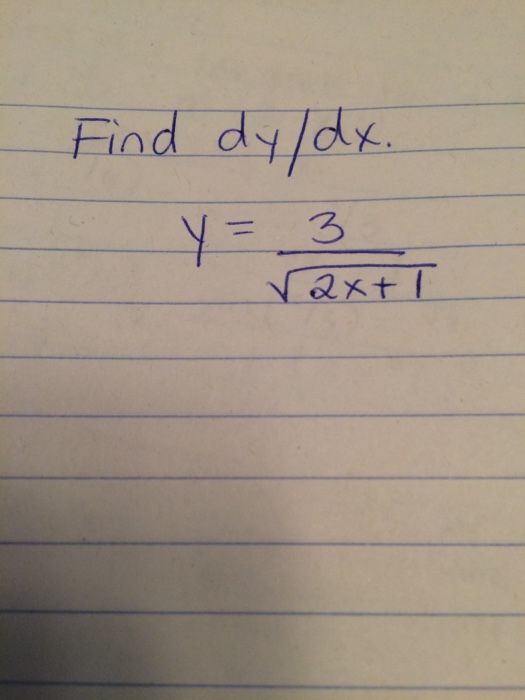 Find dy/dx.
y = 3/√(2x+1)